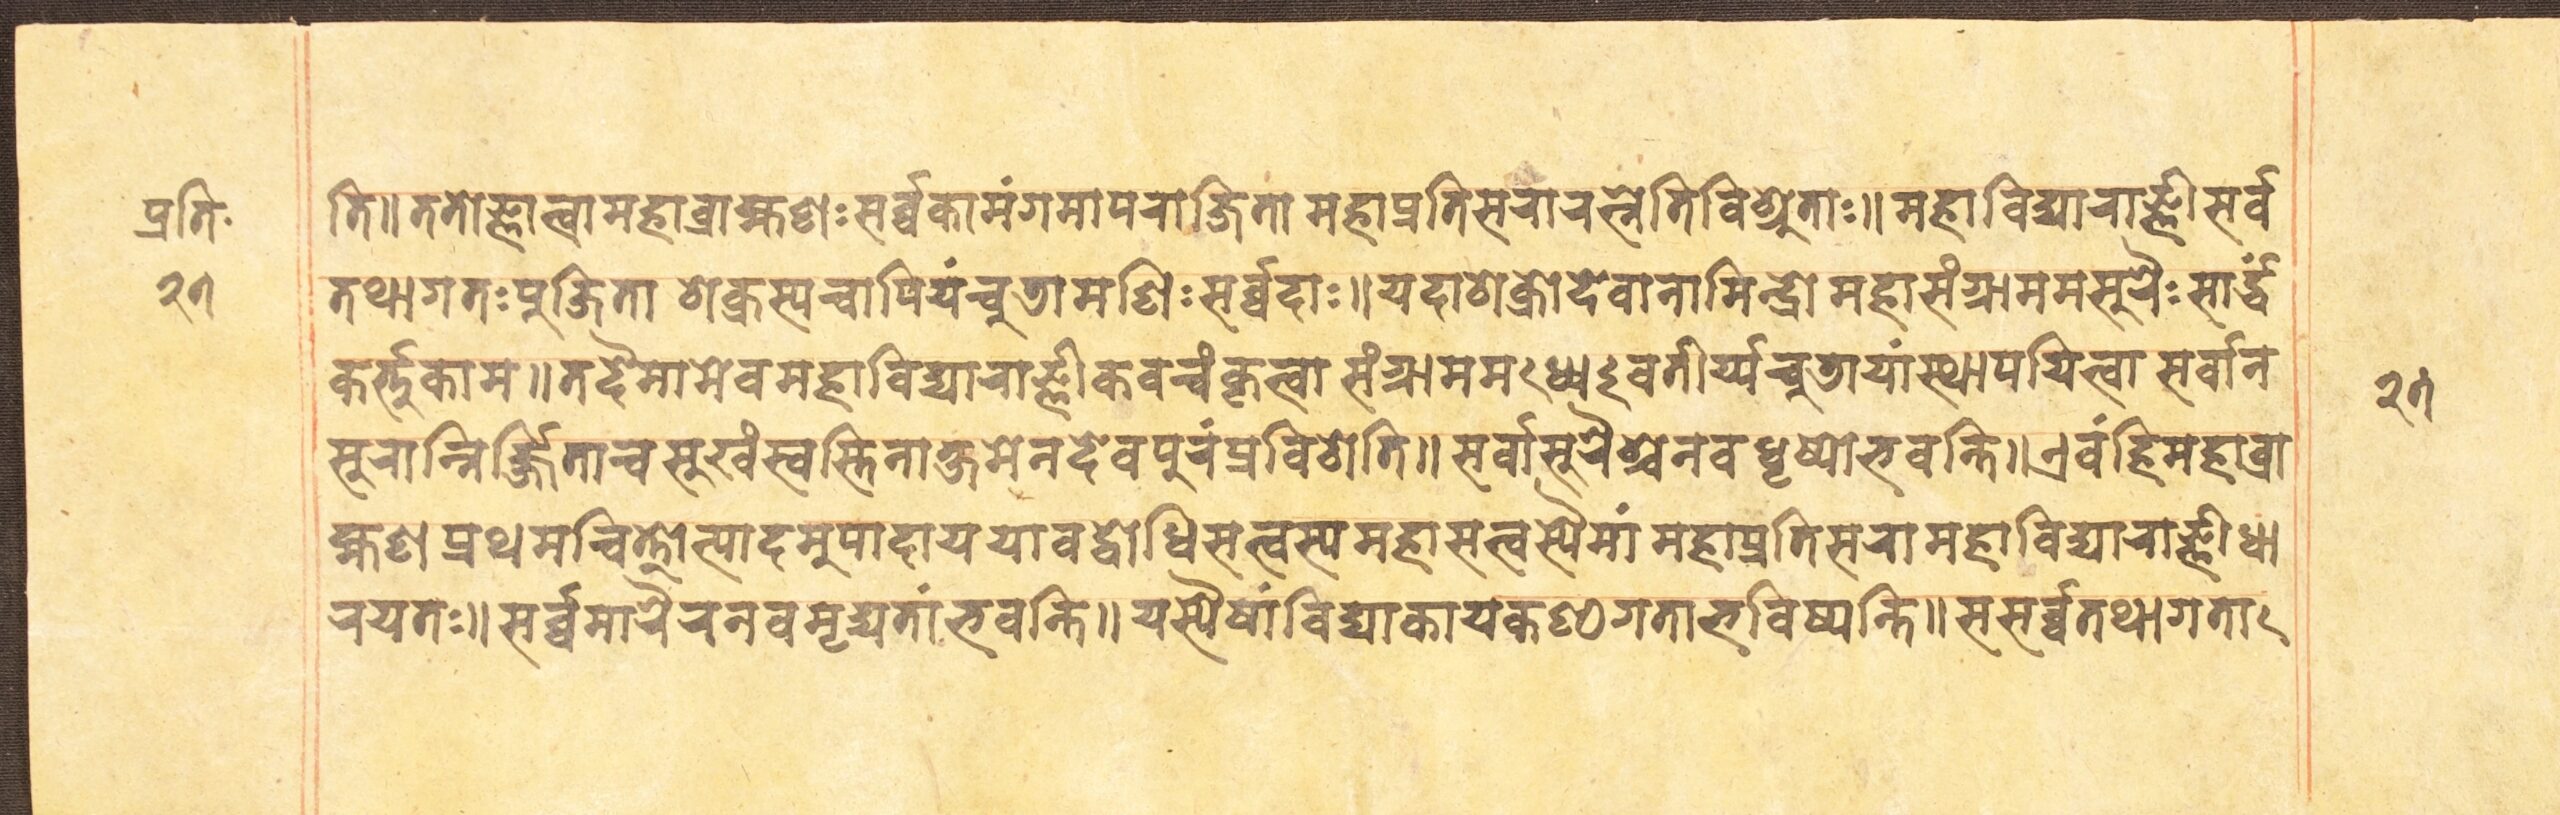 प्रतिः
२१
ति॥ ततो ज्ञात्वा महाब्राह्मणः सर्व्वकामंगमापराजिता महाप्रतिसरारत्नेति विश्रुताः॥ महाविद्याराज्ञी सर्व
तथागतः पुजिता शक्रस्य चापियं चुडामणिः सर्व्वदाः॥ यदा शक्रो देवानामिन्द्रो महासंग्राममसुरैः सार्द्धं
कर्त्तुकाम॥ तदैमामेव महाविद्याराज्ञी कवचं कृत्वा संग्राममध्य ऽवतीर्य्य चुडायां स्थापयित्वा सर्वान
सुरान्निर्ज्जितान्व सुखं स्वस्तिनाक्षमेन देवपुरं प्रविशेति॥ सर्वासुरैश्चेनवधृष्यो भवन्ति॥ एवं हि महाब्रा
ह्मण प्रथमचित्तोत्पादमुपादाय यावद्बोधिसत्वस्य महासत्वस्यैमां महाप्रतिसरा महाविद्याराज्ञी धा
रयतः॥ सर्व्वमारैरनवमृद्यतां भवन्ति॥ यस्यैषां विद्या कायकण्ठगता भविष्यन्ति॥ स सर्व्वतथागता
२१